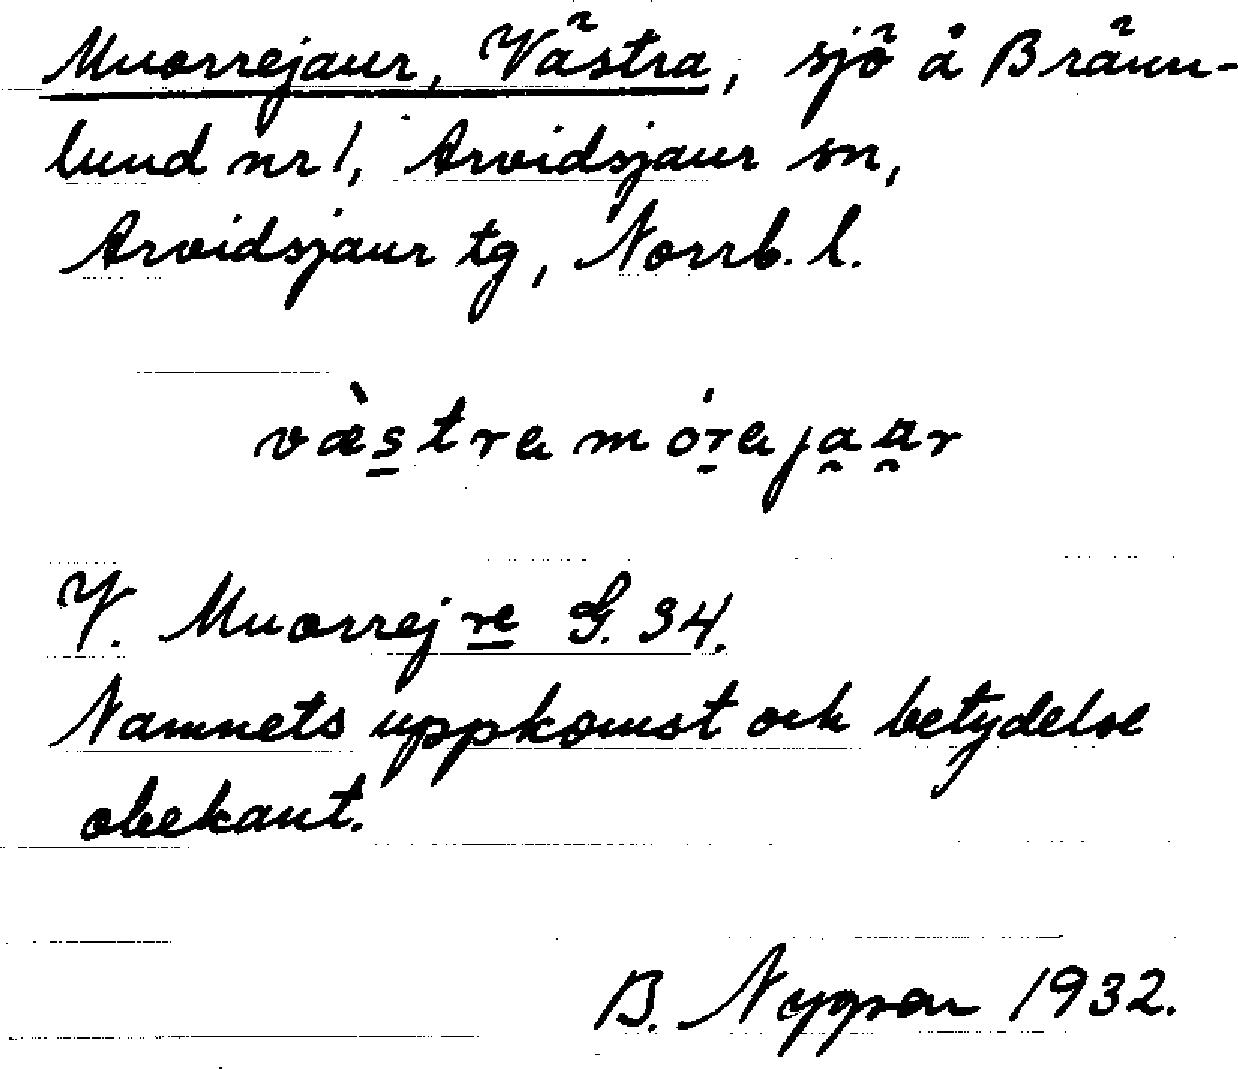 Muorrejaur, Västra, sjö å Bränn-
lund nr 1, Arvidsjaur sn,
Arvidsjaur tg, Norrb. l.
væ̀stra mórajaar
V. Muorrejre G. 34.
Namnets uppkomst och betydelse
obekant.
B. Nygren 1932.